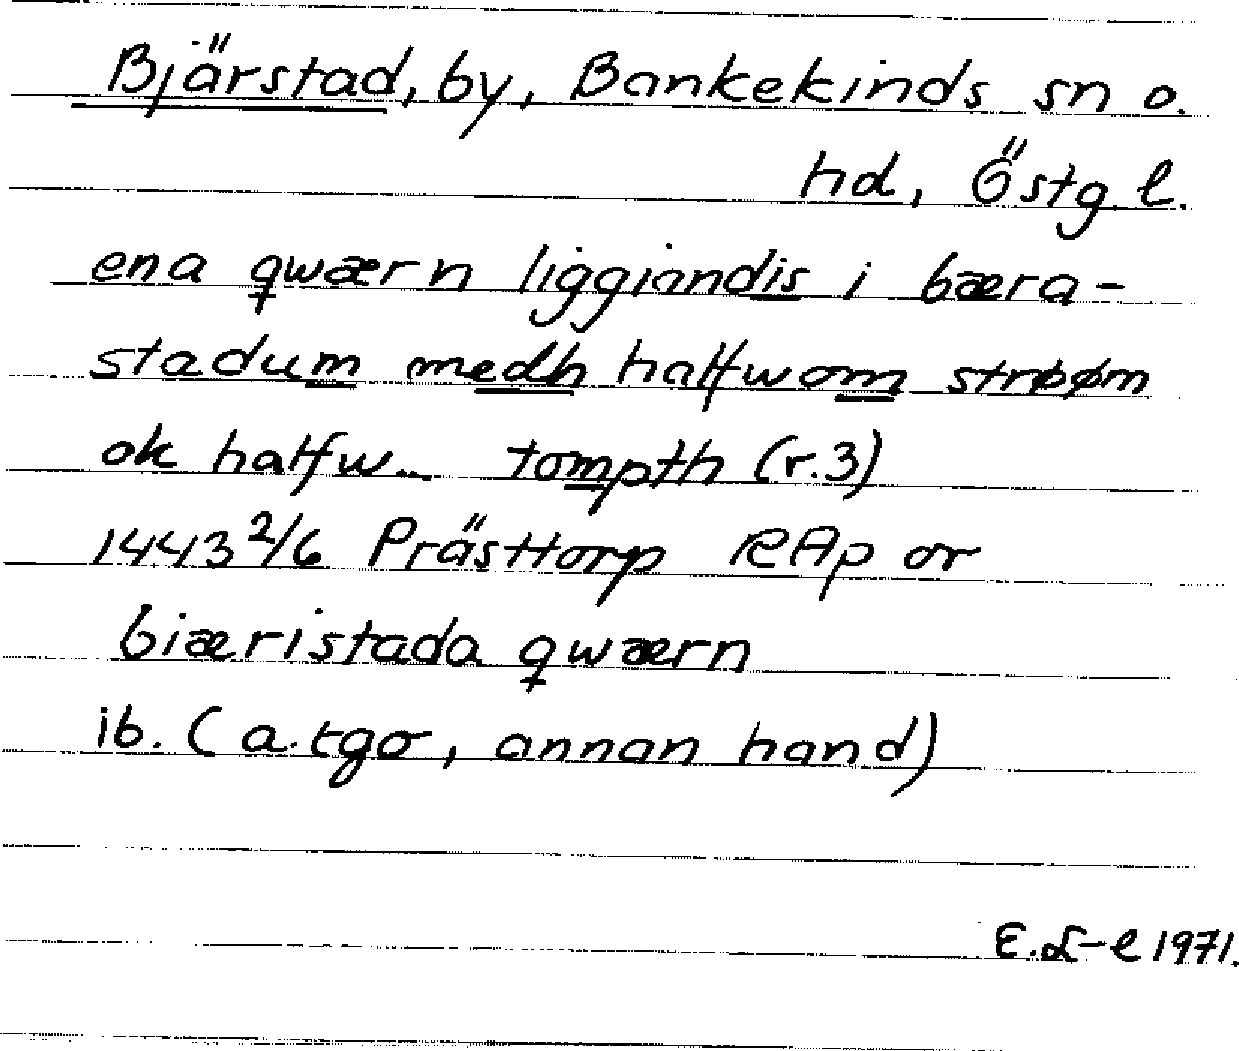 Bjärstad, by, Bankekinds sn o.
hd, Östg. l.
ena qwærn liggiandis i bæra-
stadum medh halfwom strøøm
ok halfw... tompth (r.3)
1443 2/6 Prästtorp RAp or
biæristada qwærn
ib. (a.tgo, annan hand)
E.L-e 1971.